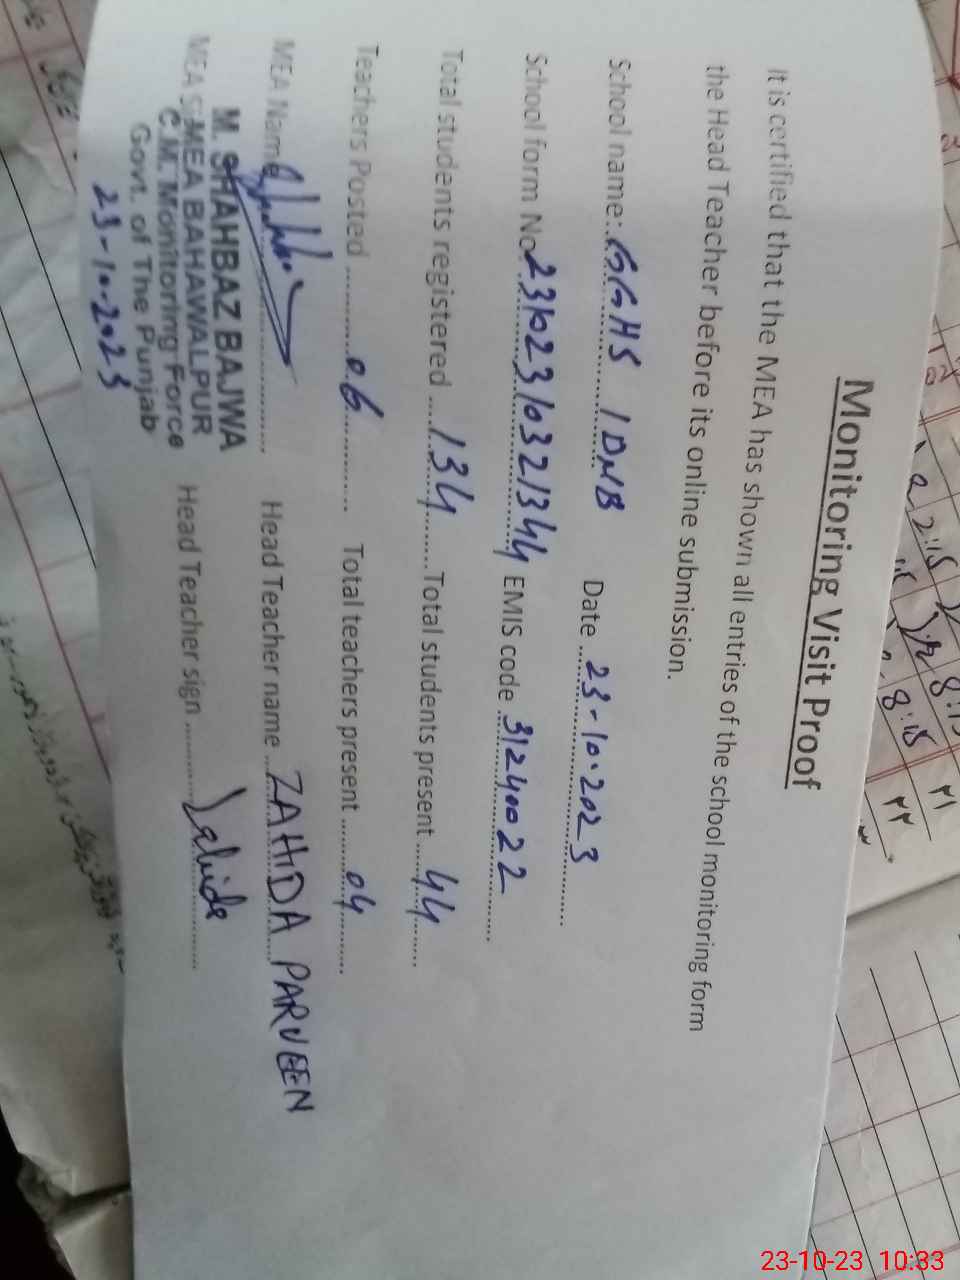 Monitoring Visit Proof
It is certified that the MEA has shown all entries of the school monitoring form
the Head Teacher before its online submission.
School name: GGHS 1DNB Date 23-10-2023
School form No 23102310321344 EMIS code 31240022
Total students registered 134 Total students present 44
Teachers Posted 06 Total teachers present 04
MEA Name Head Teacher name ZAHIDA PARVEEN
M. SHAHBAZ BAJWA
MEA BAHAWALPUR Head Teacher sign Zahida
C.M. Monitoring Force
Govt. of The Punjab
23-10-2023
2:15
8:15
۲۱
۲۲
23-10-23 10:33